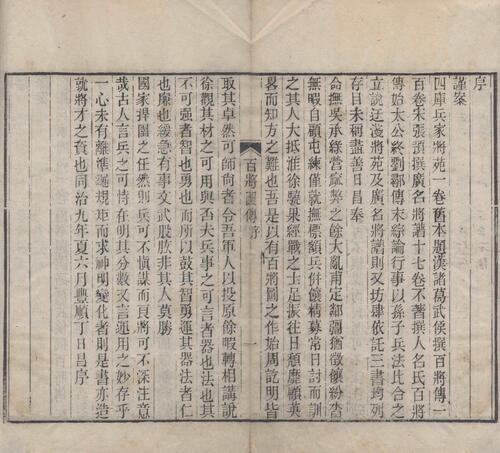 序
謹案
四庫兵家將苑一卷舊本題漢諸葛武侯撰百將傳一
百卷宋張預撰廣名將譜十七卷不著撰人名氏百將
傳始太公終劉鄩傳末綜論行事以孫子兵法比合之
立說迂淺將苑及廣名將譜則又坊肆依託三書均列
存目未稱盡善日昌奉
命撫吳承綠營窳弊之餘大亂甫定鄰彊猶徵儴紛沓
無暇自顧屯練僅就撫標額兵併儴精募常日討而訓
之其人大抵淮徐驍果經戰之士足振往日頹靡顧英
畧而知方之難也吾是以有百將圖之作始周訖明皆
百將圖傳序
一
取其卓然可師向者令吾軍人以投原餘暇轉相講說
徐觀其材之可用與否夫兵事之可言者器也法也其
不可强者智也勇也而所以鼓其智勇運其器法者仁
也廉也緩急有事文武股肱非事人莫勝
國家捍圉之任然則兵可不愼謀而良將可不深注意
哉古人言兵之可恃在明其分數又言運用之妙存乎
一心未有離準繩規矩而求神明變化者則是書亦造
就將才之資也同治九年夏六月豐順丁日昌序